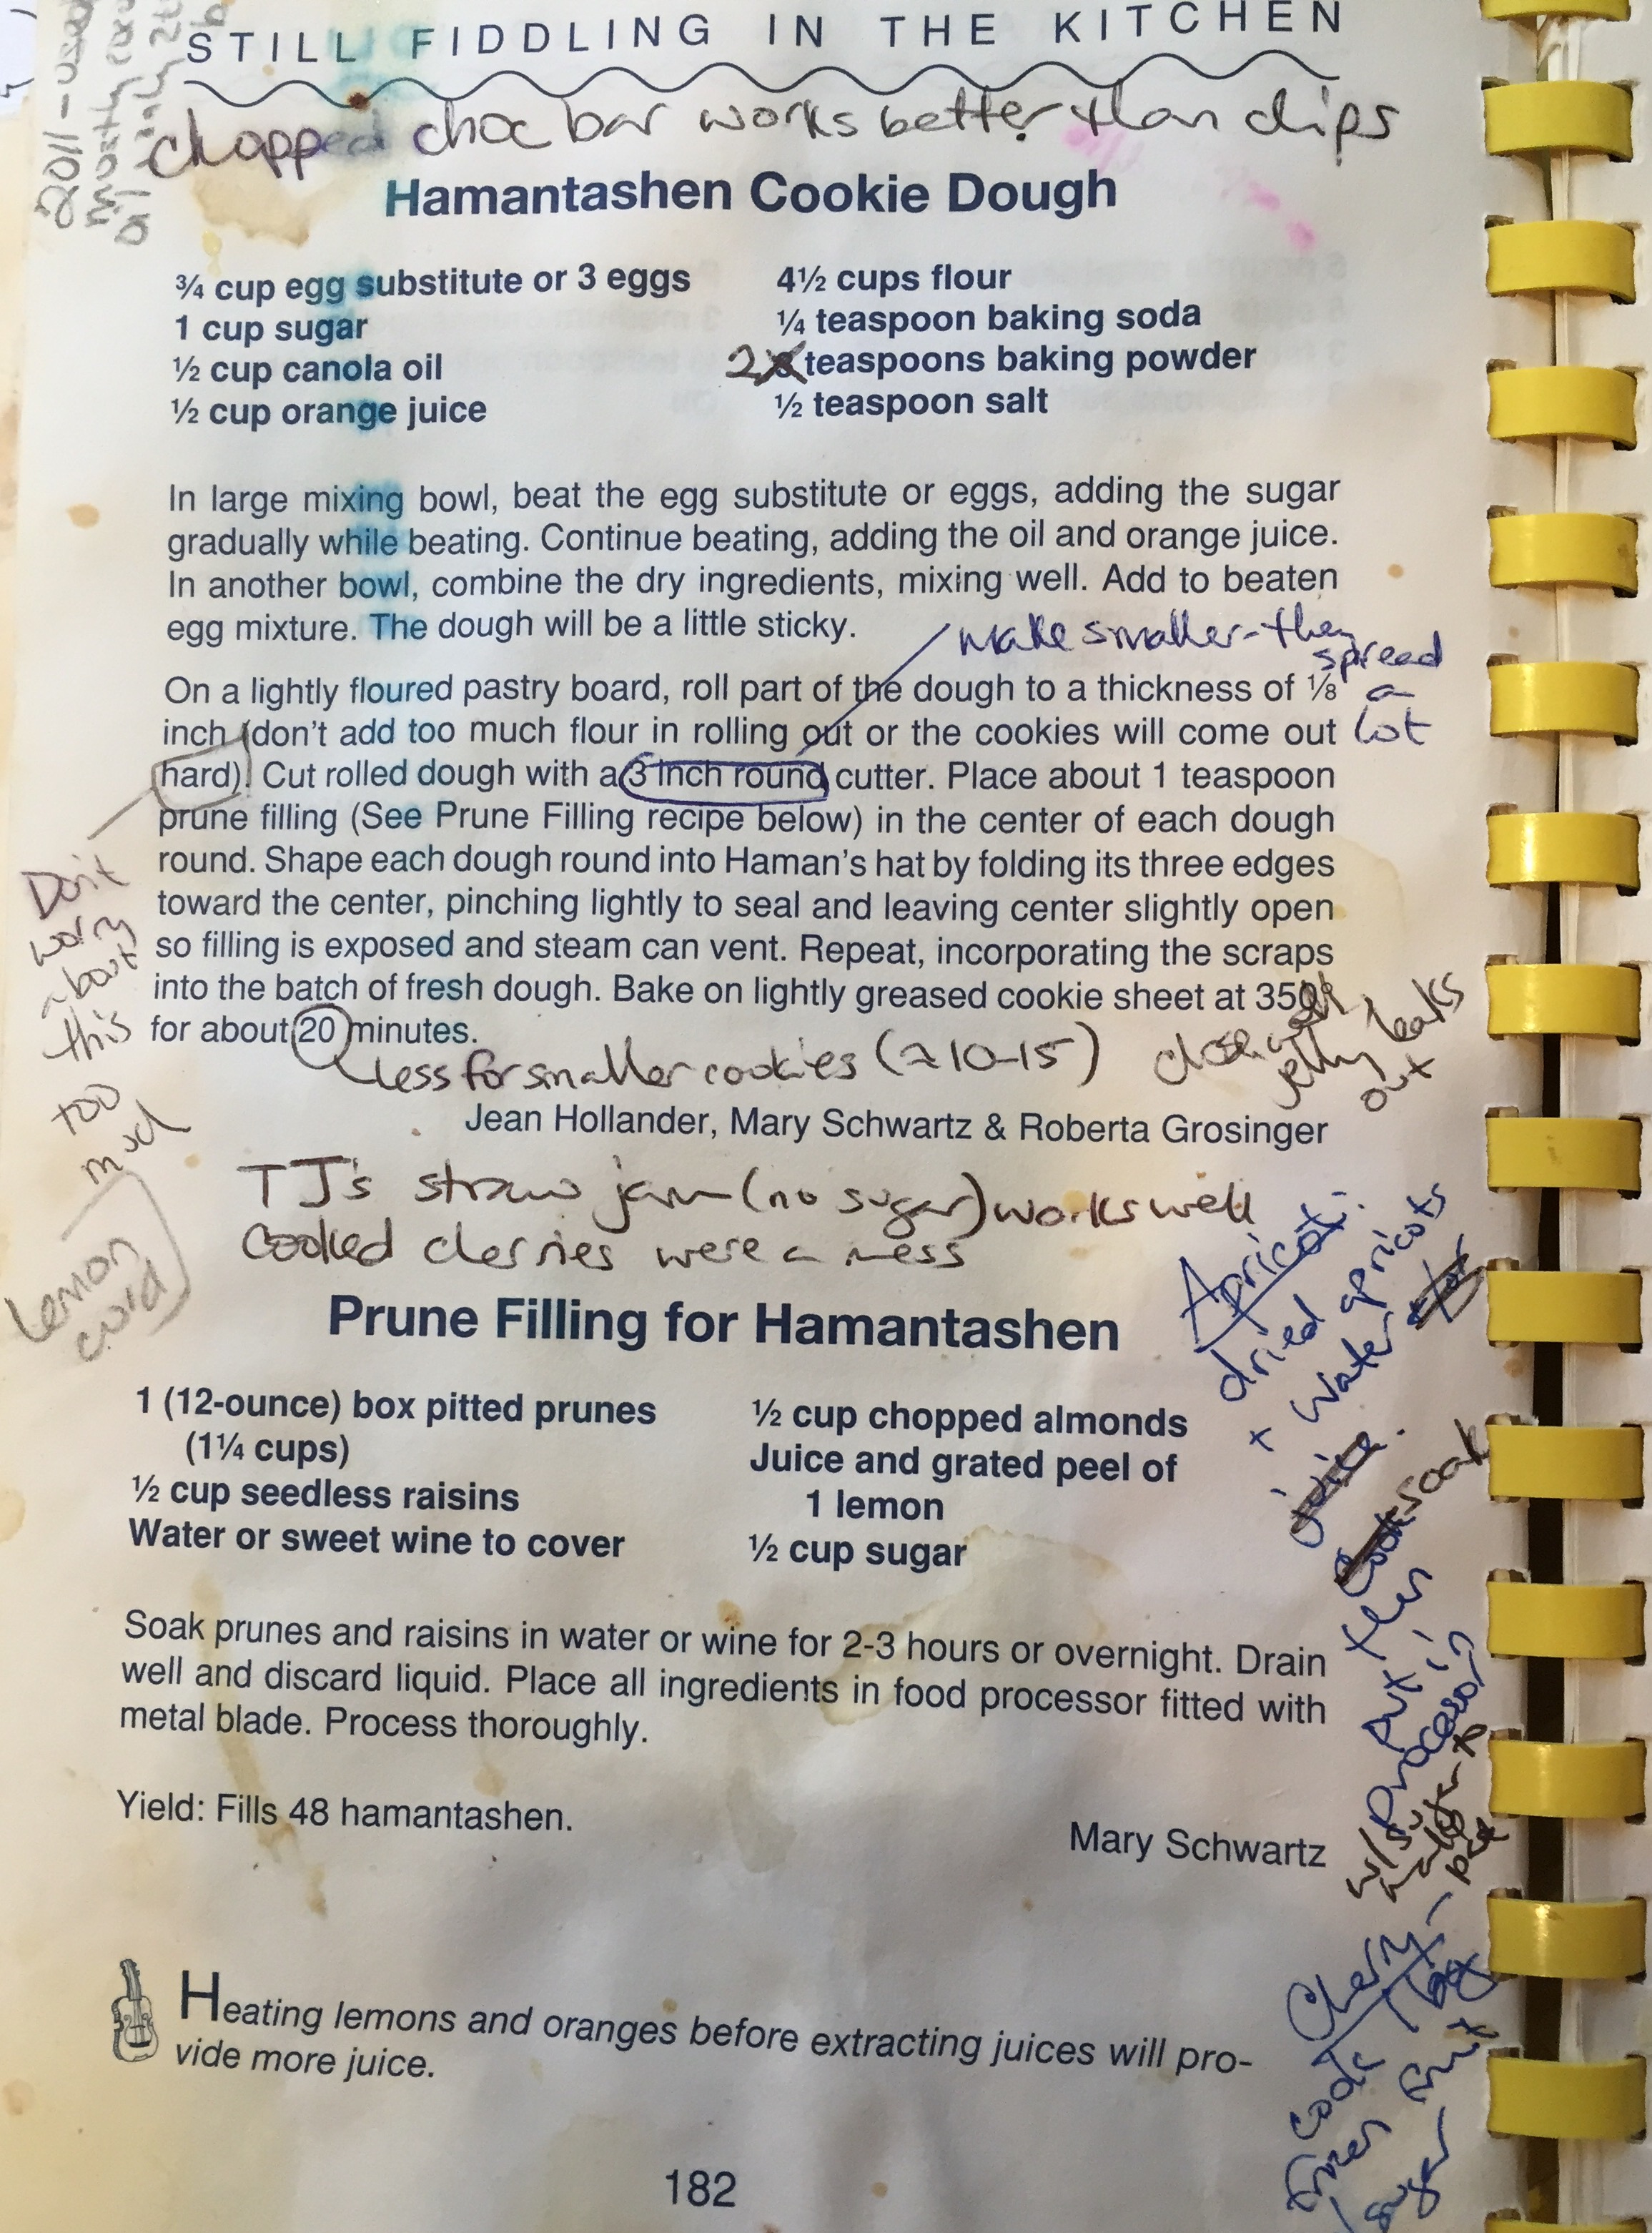 2011 - used
mostly
STILL FIDDLING IN THE KITCHEN
chopped choc bar works better than chips
Hamantashen Cookie Dough
¾ cup egg substitute or 3 eggs
1 cup sugar
½ cup canola oil
½ cup orange juice
4½ cups flour
¼ teaspoon baking soda
2 teaspoons baking powder
½ teaspoon salt
In large mixing bowl, beat the egg substitute or eggs, adding the sugar
gradually while beating. Continue beating, adding the oil and orange juice.
In another bowl, combine the dry ingredients, mixing well. Add to beaten
egg mixture. The dough will be a little sticky.
make smaller - they
spread
a
lot
On a lightly floured pastry board, roll part of the dough to a thickness of ⅛
inch (don't add too much flour in rolling out or the cookies will come out
hard). Cut rolled dough with a 3 inch round cutter. Place about 1 teaspoon
prune filling (See Prune Filling recipe below) in the center of each dough
round. Shape each dough round into Haman's hat by folding its three edges
toward the center, pinching lightly to seal and leaving center slightly open
so filling is exposed and steam can vent. Repeat, incorporating the scraps
into the batch of fresh dough. Bake on lightly greased cookie sheet at 350°
for about 20 minutes.
Don't
worry
about
this
too
much
less for smaller cookies (≈10-15)
jelly leaks
out
Jean Hollander, Mary Schwartz & Roberta Grosinger
TJ's straw jam (no sugar) works well
cooked cherries were a mess
lemon
curd
Prune Filling for Hamantashen
1 (12-ounce) box pitted prunes
(1¼ cups)
½ cup seedless raisins
Water or sweet wine to cover
½ cup chopped almonds
Juice and grated peel of
1 lemon
½ cup sugar
Apricot:
dried apricots
+ water or
juice.
Cook soak
then
put in
processor
w/ sugar to
make
Soak prunes and raisins in water or wine for 2-3 hours or overnight. Drain
well and discard liquid. Place all ingredients in food processor fitted with
metal blade. Process thoroughly.
Yield: Fills 48 hamantashen.
Mary Schwartz
Cherry -
cook 1 bag
frozen fruit
sugar
Heating lemons and oranges before extracting juices will pro-
vide more juice.
182